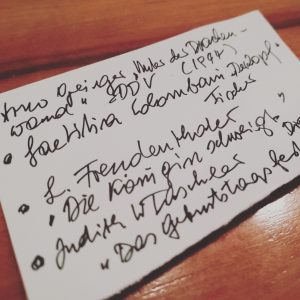 Arno Geiger „Unter der Drachen-
wand" DDV (1994)
• Laetitia Colombani Der Zopf
Fischer
• L. Freudenthaler
"Die Königin schweigt"
• Judith W. Taschler
„Das Geburtstagsfest